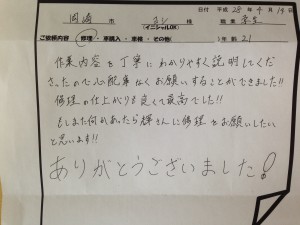 日付 平成 28年 4月 14日
岡崎 市 S.N 様 職業 学生
(イニシャルOK)
ご依頼内容 修理・車購入・車検・その他( ) 年齢 21
作業内容を丁寧にわかりやすく説明してくだ
さったので心配事なくお願いすることができました!!
修理の仕上がりも良くて最高でした!!
もしまた何かあったら輝さんに修理をお願いしたい
と思います!!
ありがとうございました!